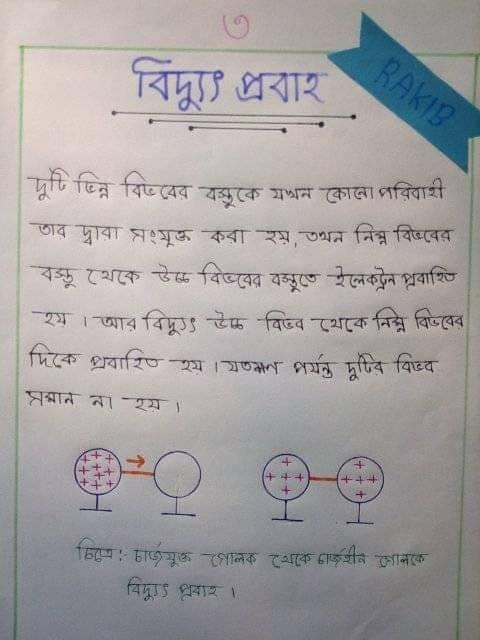 ৩
বিদ্যুৎ প্রবাহ
RAKIB
দুটি ভিন্ন বিভবের বস্তুকে যখন কোনো পরিবাহী
তার দ্বারা সংযুক্ত করা হয়, তখন নিম্ন বিভবের
বস্তু থেকে উচ্চ বিভবের বস্তুতে ইলেকট্রন প্রবাহিত
হয়। আর বিদ্যুৎ উচ্চ বিভব থেকে নিম্ন বিভবের
দিকে প্রবাহিত হয়। যতক্ষণ পর্যন্ত দুটির বিভব
সমান না হয়।
চিত্র: চার্জযুক্ত গোলক থেকে চার্জহীন গোলকে
বিদ্যুৎ প্রবাহ।